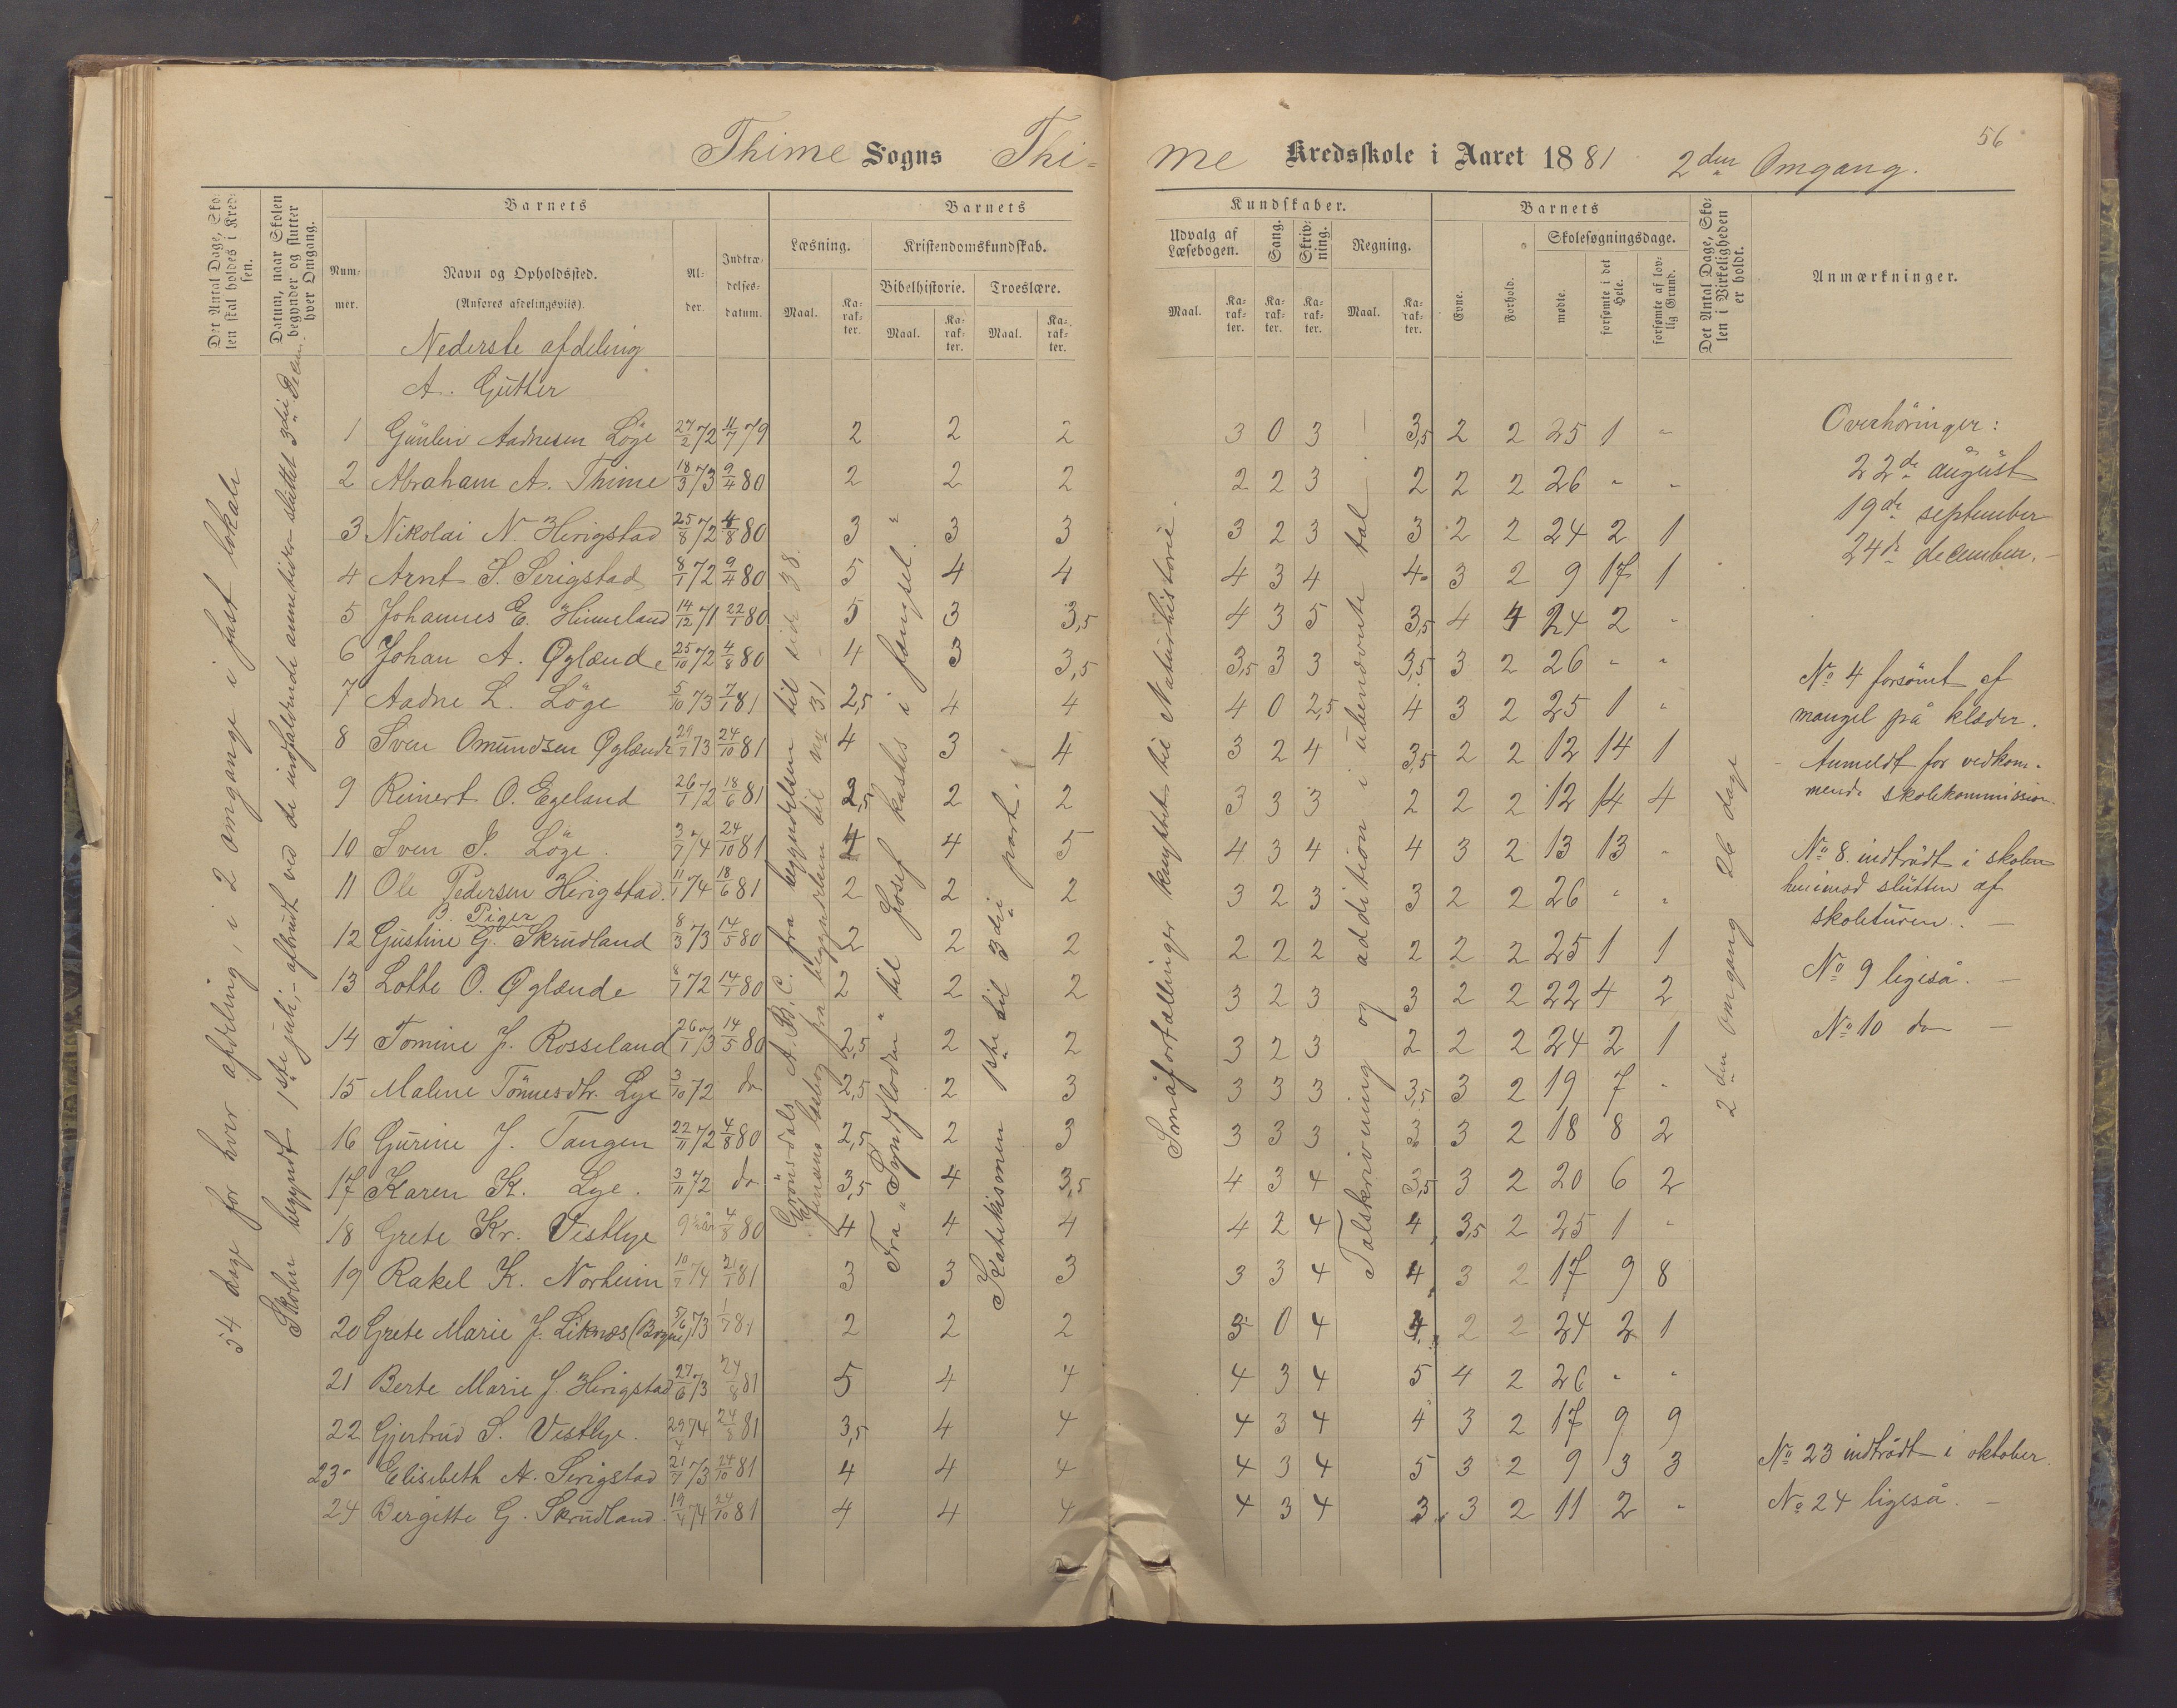 56
Thime Sogns Thi-
me Kredsskole i Aaret 1881 2den Omgang.
Det Antal Dage, Sko-
len skal holdes i Kred-
sen.
Datum, naar Skolen
begynder og slutter
hver Omgang.
Barnets
Num-
mer.
Navn og Opholdssted.
(Anføres afdelingsviis).
Al-
der.
Indtræ-
delses-
datum.
Barnets
Læsning.
Maal.
Ka-
rak-
ter.
Kristendomskundskab.
Bibelhistorie.
Maal.
Ka-
rak-
ter.
Troeslære.
Maal.
Ka-
rak-
ter.
Kundskaber.
Udvalg af
Læsebogen.
Maal.
Ka-
rak-
ter.
Sang.
Ka-
rak-
ter.
Skriv-
ning.
Ka-
rak-
ter.
Regning.
Maal.
Ka-
rak-
ter.
Barnets
Evne.
Forhold.
Skolesøgningsdage.
mødte.
forsømte i det
Hele.
forsømte af lov-
lig Grund.
Det Antal Dage, Sko-
len i Virkeligheden
er holdt.
Anmærkninger.
54 dage for hver afdeling, i 2 omgange i fast lokale
Skolen begyndt 1ste juli; - afbrudt ved de indfaldende aannetider - sluttet 3die Decem.
Nederste afdeling
A. Gutter
1 Gunleiv Aadnesen Löge 27/2 72 11/7 79 2 2 2 3 0 3 3,5 2 2 25 1 "
2 Abraham A. Thime 18/3 73 9/4 80 2 2 2 2 2 3 2 2 2 26 " "
3 Nikolai N. Herigstad 25/8 72 4/8 80 3 3 3 3 2 3 3 2 2 24 2 1
4 Arnt S. Serigstad 8/1 72 9/4 80 5 4 4 4 3 4 4 3 2 9 17 1
5 Johannes E. Hinneland 14/12 71 22/1 80 5 3 3,5 4 3 5 3,5 4 4 24 2 "
6 Johan A. Øglænde 25/10 72 4/8 80 4 3 3,5 3,5 3 3 3,5 3 2 26 " "
7 Aadne L. Löge 5/10 73 7/1 81 2,5 4 4 4 0 2,5 4 3 2 25 1 "
8 Sven Omundsen Øglænde 29/7 73 24/10 81 4 3 4 3 2 4 3,5 2 2 12 14 1
9 Reinert O. Egeland 26/1 72 18/6 81 2,5 2 2 3 3 3 2 2 2 12 14 4
10 Sven P. Löge. 3/7 74 24/10 81 4 4 5 4 3 4 4 3 2 13 13 "
11 Ole Pedersen Herigstad. 11/1 74 18/6 81 2 2 2 3 2 3 3 2 2 26 " "
B. Piger
12 Gustine G. Skrudland 8/3 73 14/5 80 2 2 2 2 2 2 2 2 2 25 1 1
13 Lotte O. Øglænde 8/1 72 14/1 80 2 2 2 3 2 3 3 2 2 22 4 2
14 Tomine J. Rosseland 26/1 73 14/5 80 2,5 2 2 3 2 3 2 2 2 24 2 1
15 Maline Tönnesdtr. Lye 3/10 72 do 2,5 2 3 3 3 3 3,5 3 2 19 7 "
16 Gurine J. Tangen 22/11 72 4/8 80 2,5 2 3 3 3 3 3 3 2 18 8 2
17 Karen K. Lye. 3/11 72 do 3,5 4 3,5 4 3 4 3,5 3 2 20 6 2
18 Grete Kr. Vestlye 9 1/2 år 4/8 80 4 4 4 4 2 4 4 3,5 2 25 1 "
19 Rakel K. Norheim 10/7 74 21/1 81 3 3 3 3 3 4 4 3 2 17 9 8
20 Grete Marie J. Liknæs (Bryne) 5/6 73 1/7 81 2 2 2 3 0 4 4 2 2 24 2 1
21 Berte Marie J. Herigstad 27/6 73 24/8 81 5 4 4 4 3 4 5 4 2 26 " "
22 Gjertrud S. Vestlye. 29/4 74 24/8 81 3,5 4 4 4 3 4 4 3 2 17 9 9
23 Elisebeth A. Serigstad 21/7 73 24/10 81 4 4 4 4 3 4 5 3 2 9 3 3
24 Bergitte G. Skrudland. 19/4 74 24/10 81 4 4 4 4 3 4 3 3 2 11 2 "
Grönsdals A. B. C. fra begyndelsen til side 38.
Jensens læsebog fra begyndelsen til no 31
Fra "Syndfloden" til "Josef kastes i fængsel"
Katekismen 1ste til 3die part.
Småfortællinger knyttet til Naturhistorie.
Talskrivning og addition i ubenævnte tal.
2den omgang 26 dage
Overhöringer:
22de august
19de september
24de december.
No 4 forsömt af
mangel på klæder.
Anmeldt for vedkom-
mende skolekommission.
No 8. indtrådt i skolen
henimod slutten af
skoleturen. -
No 9 ligeså. -
No 10 do -
No 23 indtrådt i oktober.
No 24 ligeså. -